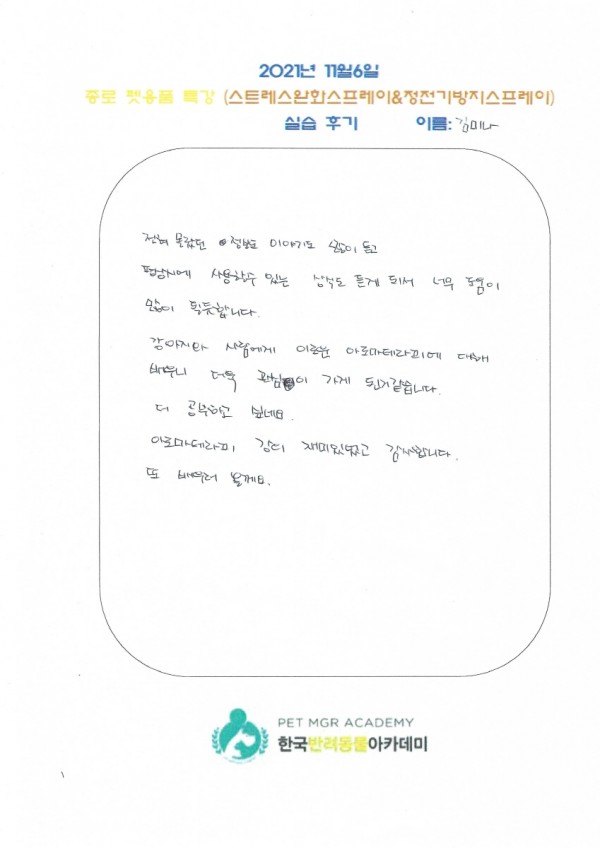 2021년 11월6일
종로 펫용품 특강 (스트레스완화스프레이&정전기방지스프레이)
실습 후기 이름: 김미나
전혀 몰랐던 정보로 이야기도 많이 듣고
평상시에 사용할수 있는 상식도 듣게 되서 너무 도움이
많이 될듯합니다.
강아지와 사람에게 이로운 아로마테라피에 대해
배우니 더욱 관심이 가게 된거같습니다.
더 공부하고 싶네요.
아로마테라피 강의 재미있었고 감사합니다.
또 배우러 올게요.
PET MGR ACADEMY
한국반려동물아카데미